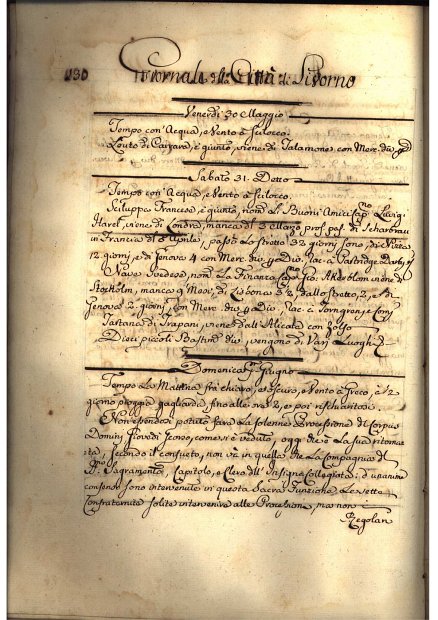 130 Giornali della Città di Livorno
Venerdi 30 Maggio
Tempo con Acqua, e Vento à Scilocco.
Leuto di Carrara, è giunto, viene di Talamone con Merc. div.
Sabato 31. Detto
Tempo con Acqua, e Vento à Scilocco.
Sciluppo Francese, è giunto, nom. Li Buoni Amici Cap.no Luigi
Harel, viene di Londra, manca di 3 Marzo
in Francia di 8 Aprile, passò Lo stretto 32 giorni sono, di Nizza
12 giorni, e di Genova 4 con Merc. div.
Nave Svedese, nom. La Finanza Cap.no Gio: Akerblom viene di
Stockolm, manca 9 Mesi, di Lisbona 52, dallo stretto 2, e di
Genova 2 giorni, con Merc. div.
Tartana di Trapani, viene dall'Alicata con Zolfo
Dieci piccoli Bastim. div. vengono di Varj Luoghi
Domenica P.° Giugno
Tempo La Mattina frà chiaro, e oscuro, e Vento à Greco, à 1/2
giorno pioggia gagliarda, fino alle ore 2, e poi rischiaritosi.
Non essendosi potuto fare La solenne Processione di Corpus
Domini Giovedi scorso, come si è veduto, oggi che è La sua ritornata
, secondo il consueto, non và in quella che La Compagnia del
SS. Sagramento, Capitolo, e Clero dell'Insigne Collegiata:
sono intervenute in questa Sacra Funzione Le sette
Confraternite solite intervenire alle Processioni, ma non
Regolan